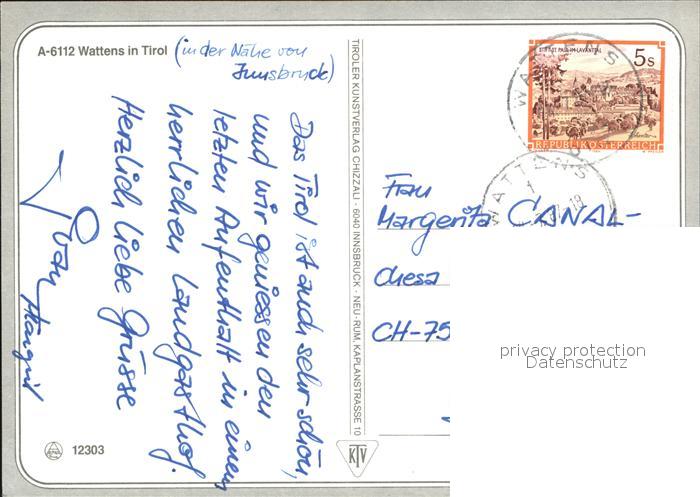 A-6112 Wattens in Tirol (in der Nähe von
Innsbruck)
Das Tirol ist auch sehr schön,
und wir geniessen den
letzten Aufenthalt in einem
herrlichen Landgasthof.
Herzlich liebe Grüsse
Ivan
Margrit
12303
TIROLER KUNSTVERLAG CHIZZALI · 6040 INNSBRUCK - NEU-RUM, KAPLANSTRASSE 10
KTV
STIFT ST. PAUL IM LAVANTTAL
5s
REPUBLIK ÖSTERREICH
WATTENS
WATTENS
1
18
Frau
Margerita CANAL-
Chesa
CH-75
privacy protection
Datenschutz